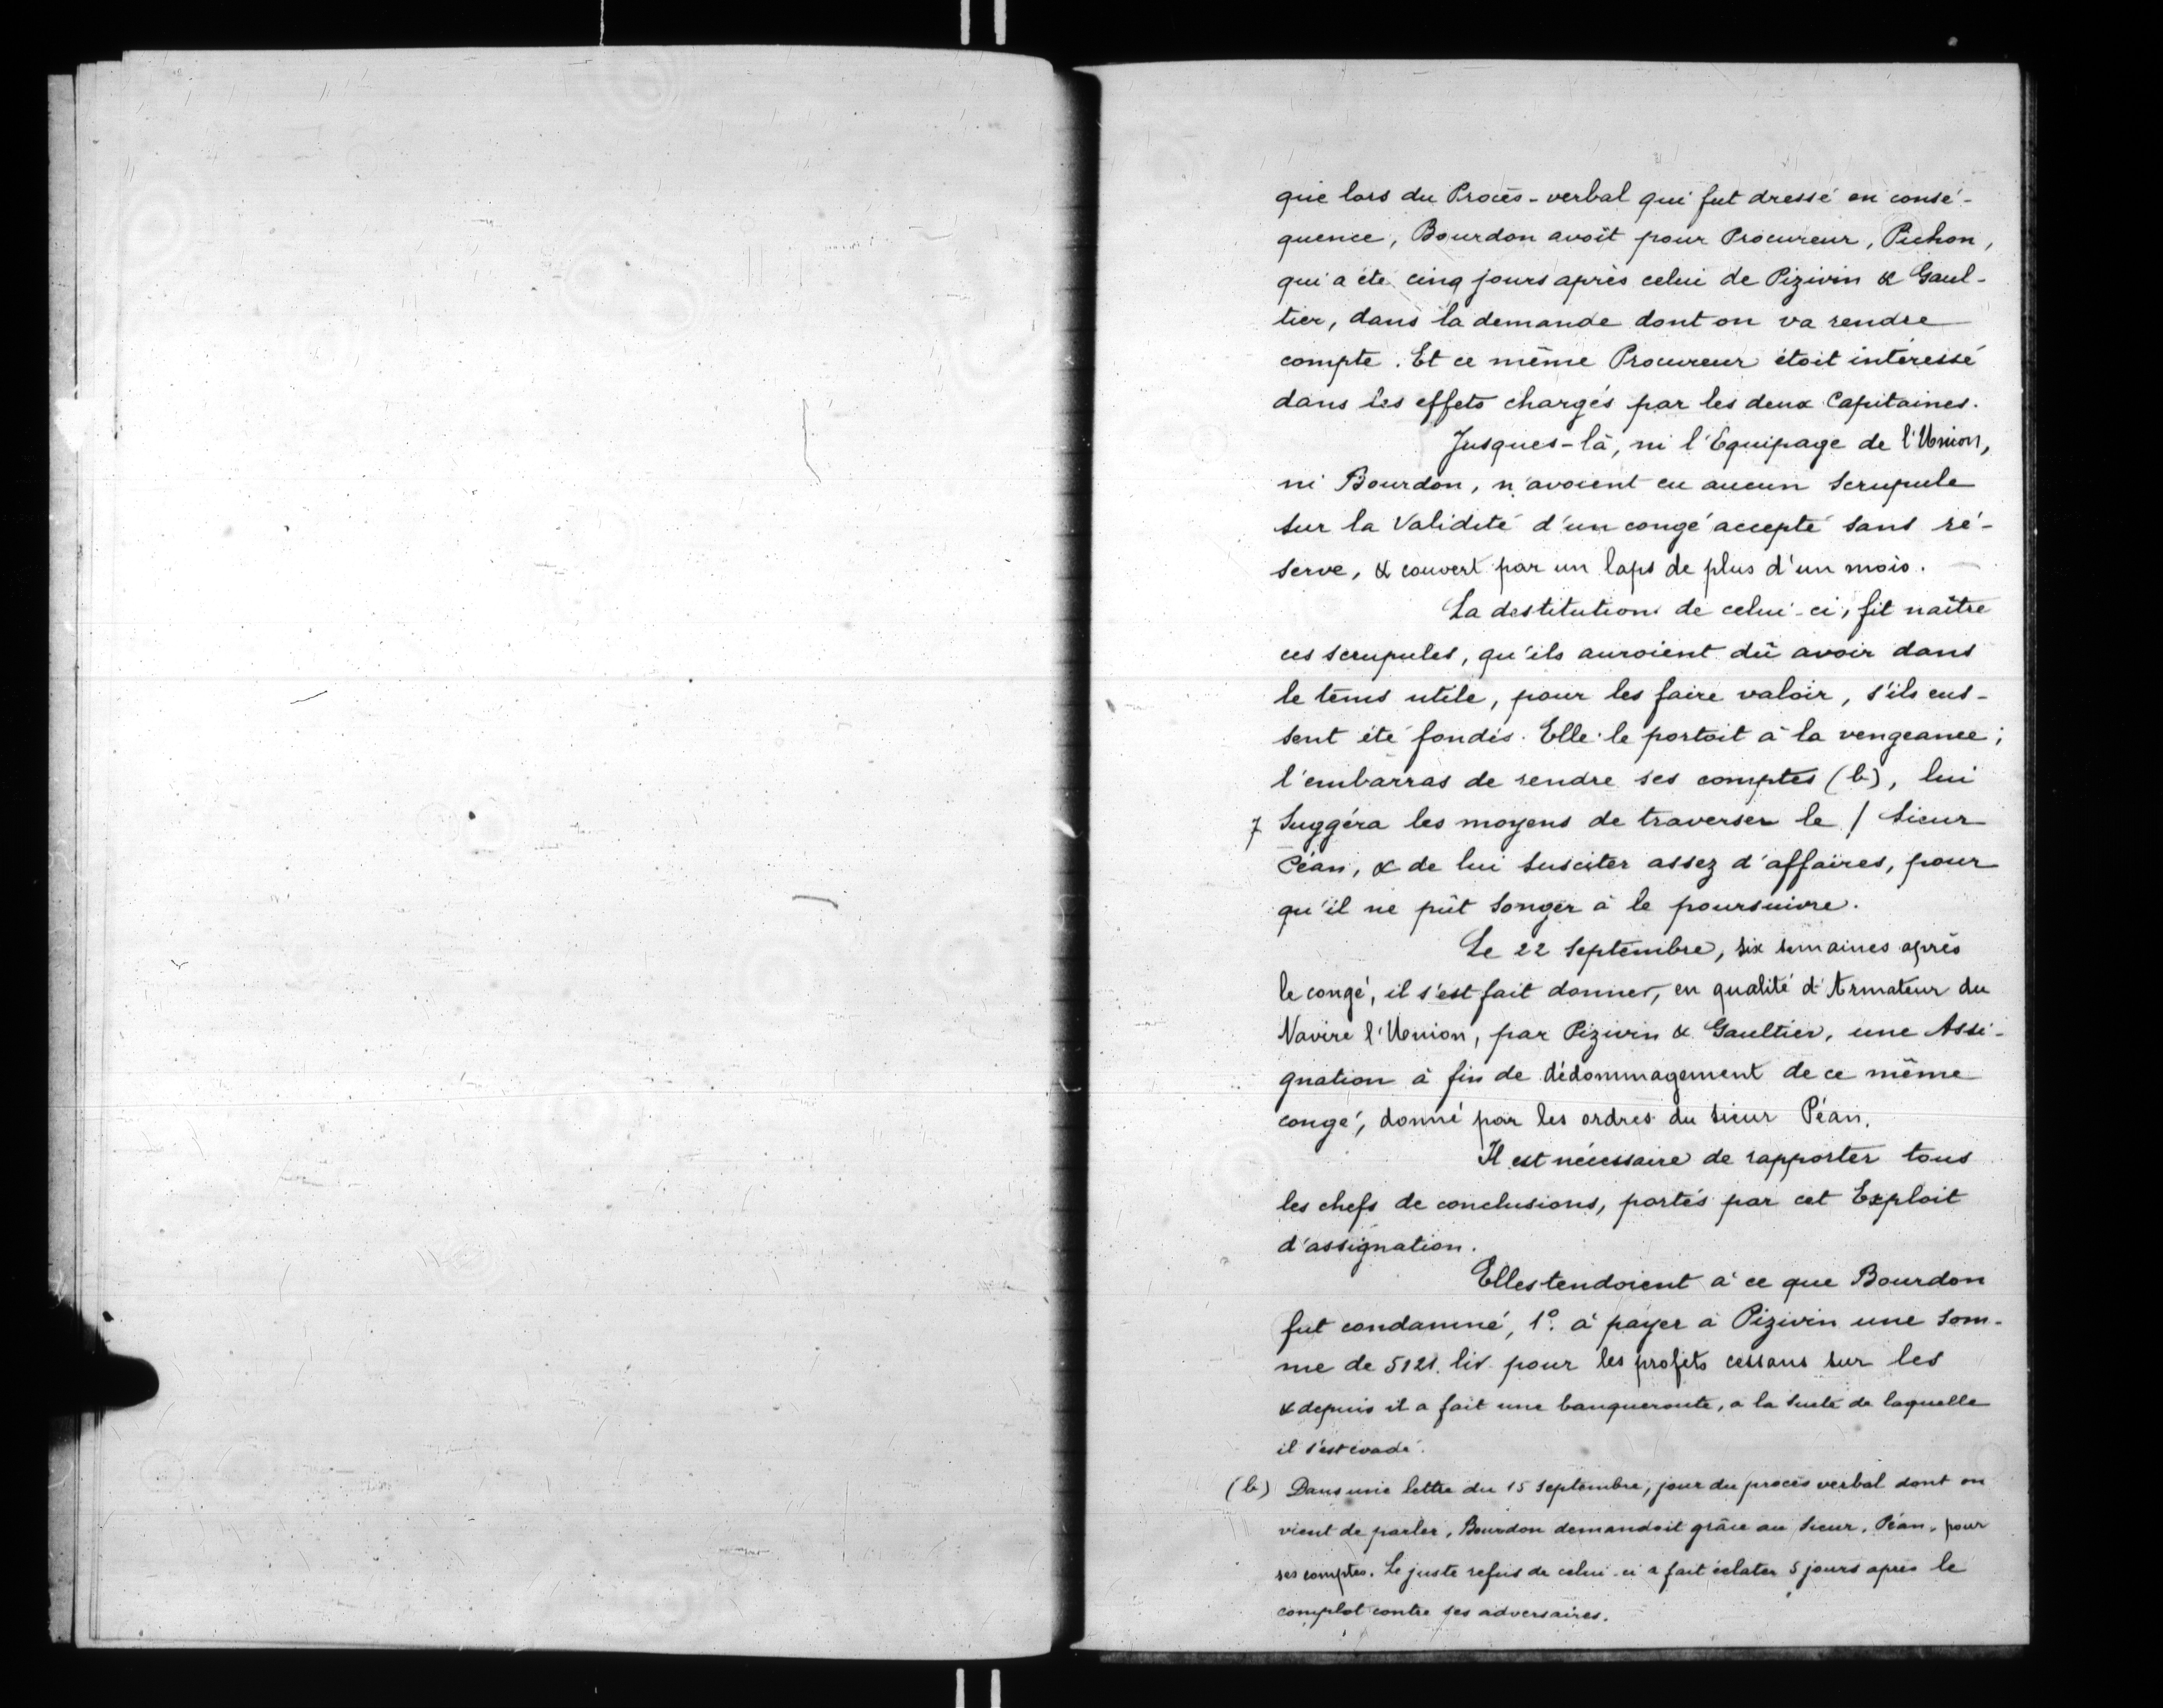 que lors du Procès-verbal qui fut dressé en consé-
quence, Bourdon avoit pour Procureur, Pichon,
qui a été cinq jours après celui de Pizivin & Gaul-
tier, dans la demande dont on va rendre
compte. Et ce même Procureur étoit intéressé
dans les effets chargés par les deux Capitaines.
Jusques-là, ni l'Equipage de l'Union,
ni Bourdon, n'avoient eu aucun scrupule
sur la Validité d'un congé accepté sans ré-
serve, & couvert par un laps de plus d'un mois.
La destitution de celui-ci, fit naître
ces scrupules, qu'ils auroient dû avoir dans
le têms utile, pour les faire valoir, s'ils eus-
sent été fondés. Elle le portoit à la vengeance;
l'embarras de rendre ses comptes (b), lui
7 Suggéra les moyens de traverser le / Sieur
Péan, & de lui susciter assez d'affaires, pour
qu'il ne pût songer à le poursuivre.
Le 22 Septembre, six semaines après
le congé, il s'est fait donner, en qualité d'Armateur du
Navire l'Union, par Pizivin & Gaultier, une Assi-
gnation à fin de dédommagement de ce même
congé, donné par les ordres du sieur Péan.
Il est nécessaire de rapporter tous
les chefs de conclusions, portés par cet Exploit
d'assignation.
Elles tendoient à ce que Bourdon
fut condamné, 1º. à payer à Pizivin une som-
me de 5121. liv. pour les profits cessans sur les
& depuis il a fait une banqueroute, a la suite de laquelle
il s'est évadé.
(b) Dans une lettre du 15 Septembre, jour du procès verbal dont on
vient de parler, Bourdon demandoit grâce au Sieur, Péan, pour
ses comptes. Le juste refus de celui-ci a fait éclater 5 jours après le
complot contre ses adversaires.